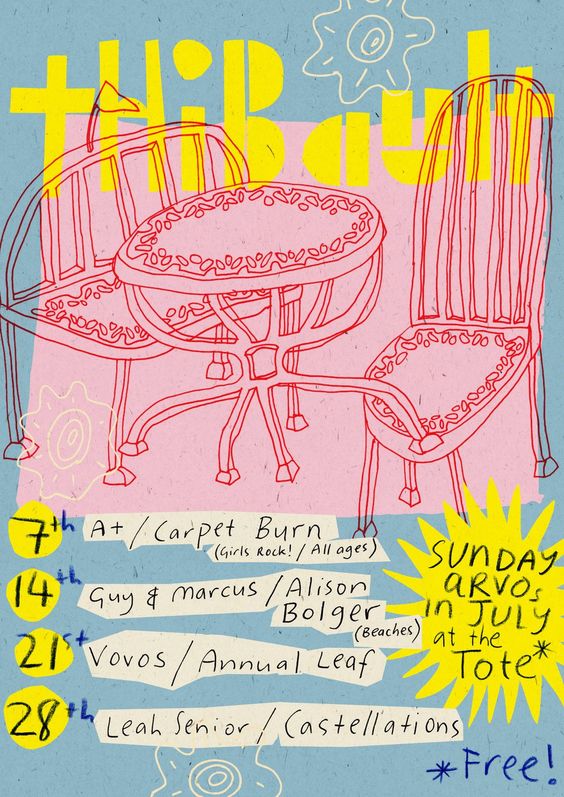 tHiBault
7th A+ / Carpet Burn
(Girls Rock! / All ages)
14th Guy & Marcus / Alison
Bolger
(Beaches)
21st Vovos / Annual Leaf
28th Leah Senior / Castellations
SUNDAY
arvos
in JULY
at the
Tote*
*Free!